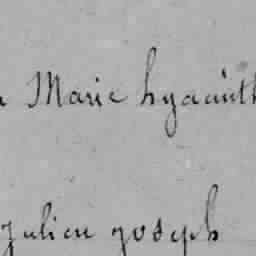 Marie hyacinth
julien joseph